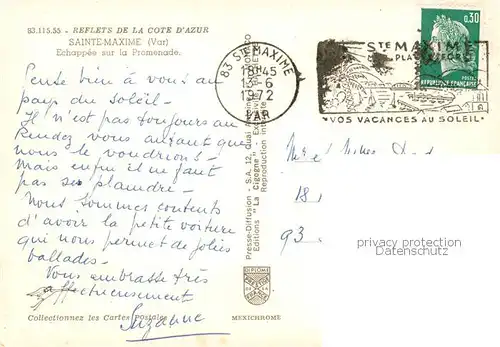 83.115.55 - REFLETS DE LA COTE D'AZUR
SAINTE-MAXIME (Var)
Echappée sur la Promenade.
Pense bien à vous au
pays du soleil -
Il n'est pas toujours au
Rendez vous autant que
nous le voudrions -
Mais enfin il ne faut
pas se plaindre -
Nous sommes contents
d'avoir la petite voiture
qui nous permet de jolies
ballades -
Vous embrasse très
affectueusement
Suzanne
Collectionnez les Cartes Postales
MEXICHROME
Presse-Diffusion - S.A. 12, Quai
Editions "La Cigogne"
Reproduction
DIPLOME
83 STE MAXIME
18H45
13-6
1972
VAR
STE MAXIME
VOS VACANCES AU SOLEIL
0,30
REPUBLIQUE FRANÇAISE
18
93
privacy protection
Datenschutz